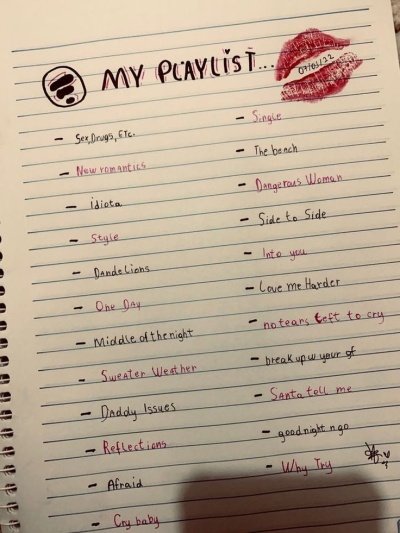 MY PLAYLIST...
07/01/22
- Sex, Drugs, Etc.
- New romantics
- idiota
- Style
- Dandelions
- One Day
- Middle of the night
- Sweater Weather
- Daddy Issues
- Reflections
- Afraid
- Cry baby
- Single
- The beach
- Dangerous Woman
- Side to Side
- Into you
- Love me Harder
- no tears left to cry
- break up w your gf
- Santa tell me
- goodnight n go
- Why Try